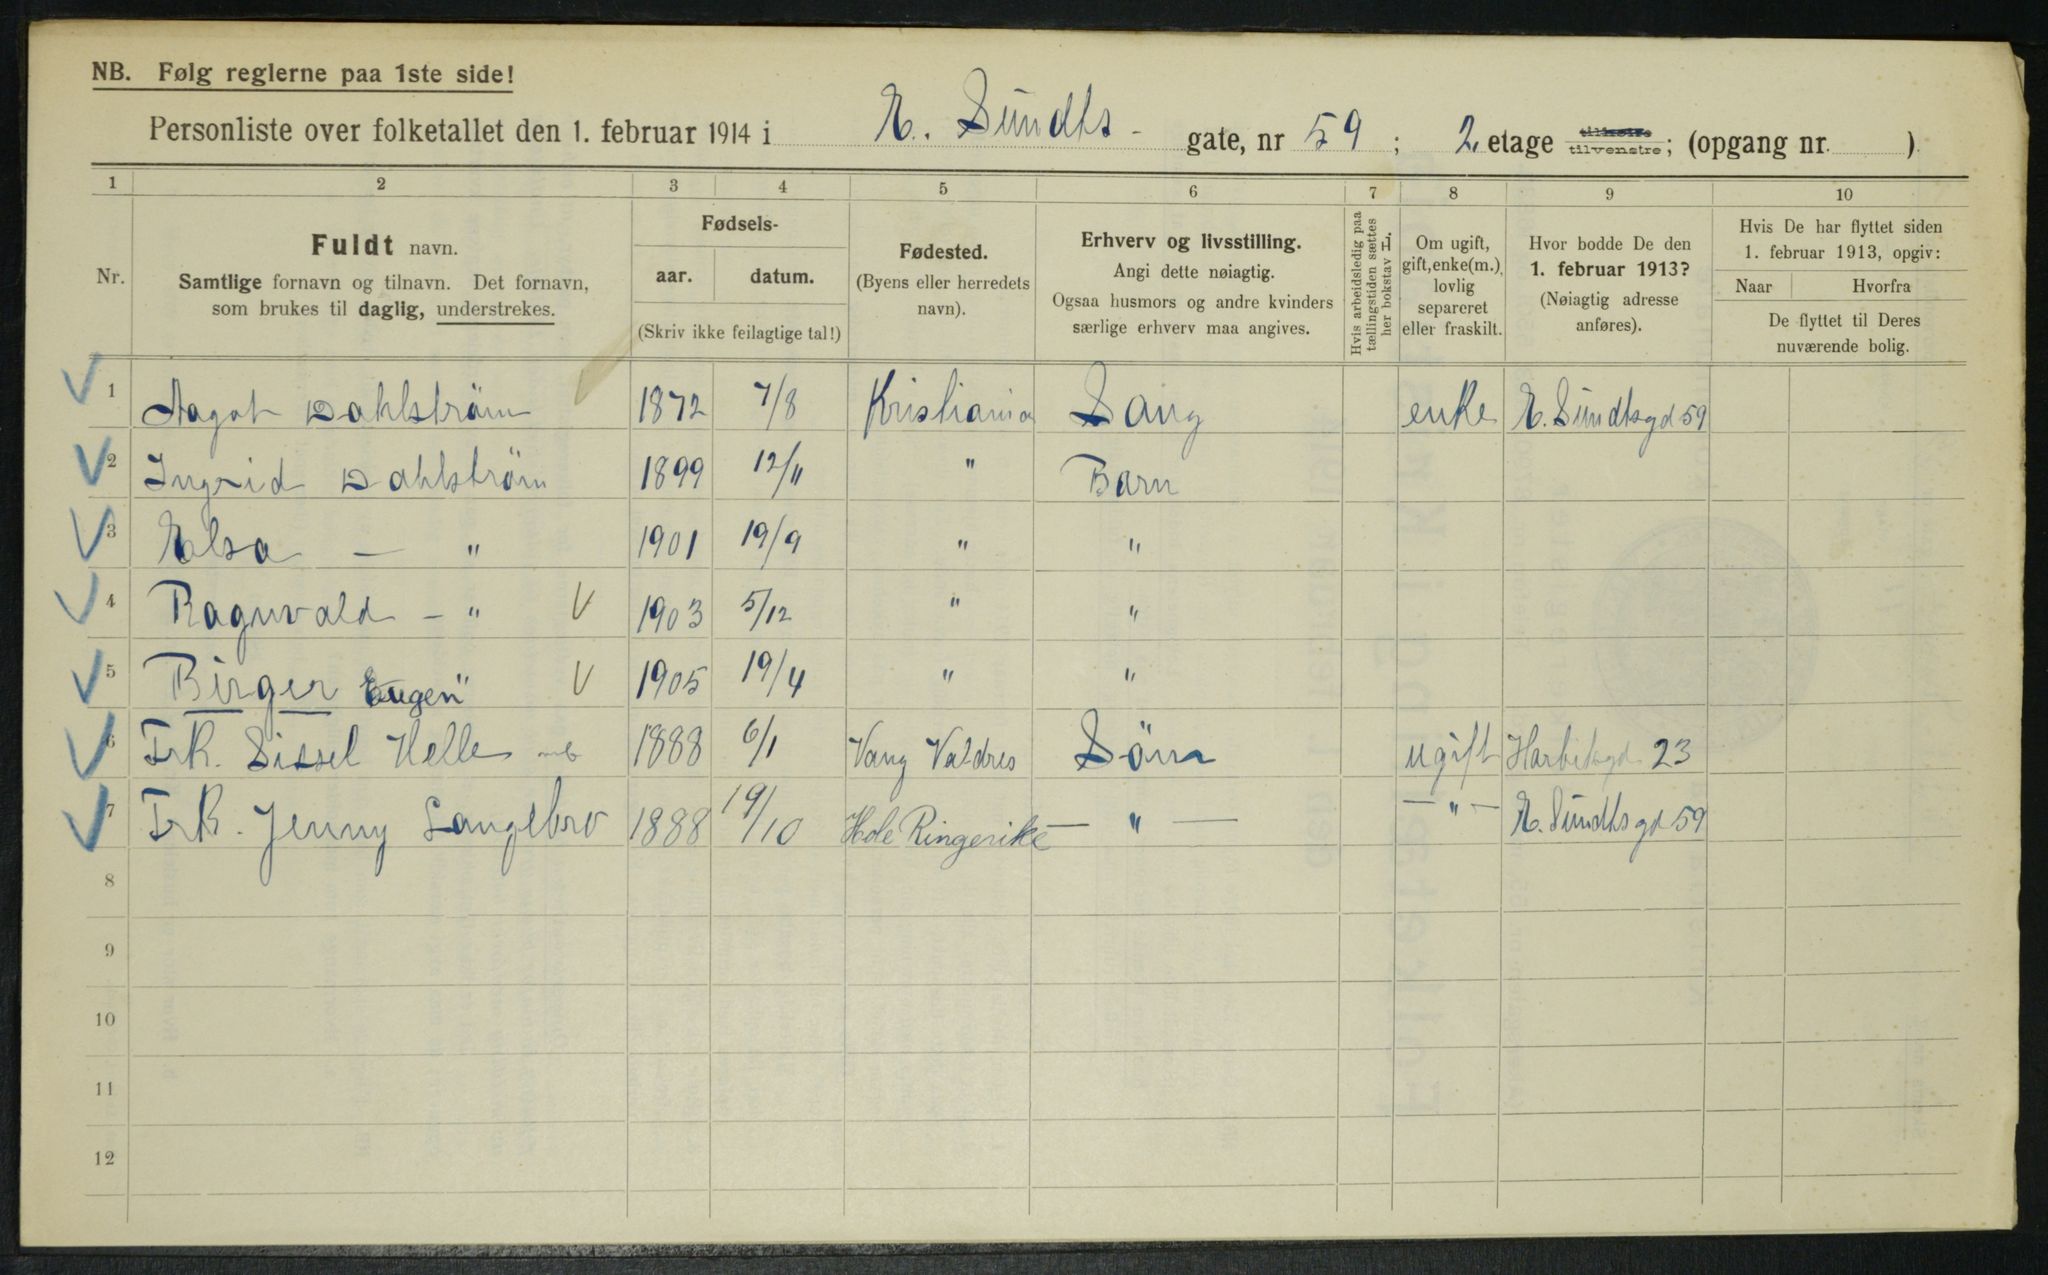 NB. Følg reglerne paa 1ste side!
Personliste over folketallet den 1. februar 1914 i E. Sundts - gate, nr 59 ; 2. etage tilhøire tilvenstre ; (opgang nr. )
1 2 3 4 5 6 7 8 9 10
Nr.
Fuldt navn.
Samtlige fornavn og tilnavn. Det fornavn,
som brukes til daglig, understrekes.
Fødsels-
aar. datum.
(Skriv ikke feilagtige tal!)
Fødested.
(Byens eller herredets
navn).
Erhverv og livsstilling.
Angi dette nøiagtig.
Ogsaa husmors og andre kvinders
særlige erhverv maa angives.
Hvis arbeidsledig paa
tællingstiden sættes
her bokstav L.
Om ugift,
gift, enke(m.),
lovlig
separeret
eller fraskilt.
Hvor bodde De den
1. februar 1913?
(Nøiagtig adresse
anføres).
Hvis De har flyttet siden
1. februar 1913, opgiv:
Naar Hvorfra
De flyttet til Deres
nuværende bolig.
1 Aagot Dahlström 1872 7/8 Kristiania enke E. Sundtsgd 59
2 Ingrid Dahlström 1899 12/11 " Barn
3 Elsa — " 1901 19/9 " "
4 Ragnvald - " V 1903 5/12 " "
5 Birger Eugen " V 1905 19/4 " "
6 Frk. Sissel Helle 1888 6/1 Vang Valdres Söm ugift Harbitsgd 23
7 Frk. Jenny Langebro 1888 19/10 Hole Ringerike — " — — " — E. Sundts gd 59
8
9
10
11
12